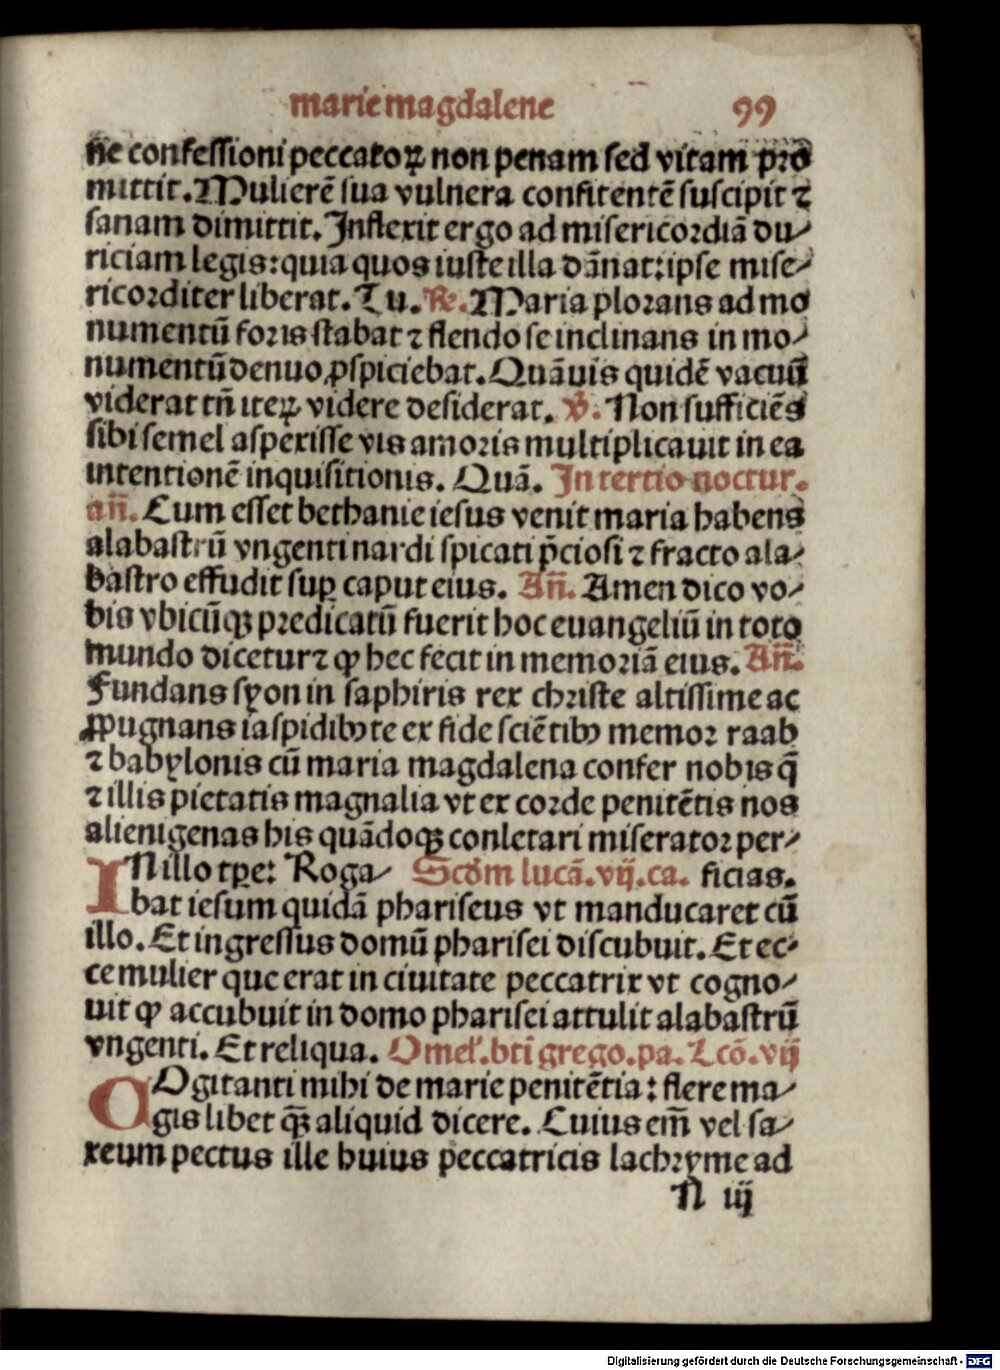 marie magdalene 99
ne confessioni peccatoꝝ non penam sed vitam pro
mittit. Mulierē sua vulnera confitentē suscipit ⁊
sanam dimittit. Inflexit ergo ad misericordiā du⸗
riciam legis: quia quos iuste illa dānat: ipse mise⸗
ricorditer liberat. Tu. ℟. Maria plorans ad mo
numentū foris stabat ⁊ flendo se inclinans in mo⸗
numentū denuo ꝓspiciebat. Quāuis quidē vacuū
viderat tn̄ iteꝝ videre desiderat. ℣. Non sufficiēs
sibi semel aspexisse vis amoris multiplicauit in ea
intentionē inquisitionis. Quā. In tertio noctur.
an̄. Cum esset bethanie iesus venit maria habens
alabastrū vngenti nardi spicati p̄ciosi ⁊ fracto ala⸗
bastro effudit suꝑ caput eius. An̄. Amen dico vo⸗
bis vbicūqꝫ predicatū fuerit hoc euangeliū in toto
mundo dicetur ⁊ ꝙ hec fecit in memoriā eius. An̄.
Fundans syon in saphiris rex christe altissime ac
ꝓpugnans iaspidibꝰ te ex fide sciētibꝰ memor raab
⁊ babylonis cū maria magdalena confer nobis q̄
⁊ illis pietatis magnalia vt ex corde penitētis nos
alienigenas his quādoqꝫ conletari miserator per⸗
IN illo tꝑe: Roga⸗ Scd̄m lucā. vij. ca. ficias.
bat iesum quidā phariseus vt manducaret cū
illo. Et ingressus domū pharisei discubuit. Et ec⸗
ce mulier que erat in ciuitate peccatrix vt cogno⸗
uit ꝙ accubuit in domo pharisei attulit alabastrū
vngenti. Et reliqua. Omel̕. bt̄i grego. pa. Lcō. vij
COgitanti mihi de marie penitētia: flere ma⸗
gis libet qꝫ̄ aliquid dicere. Cuius em̄ vel sa⸗
xeum pectus ille huius peccatricis lachryme ad
N iij
Digitalisierung gefördert durch die Deutsche Forschungsgemeinschaft - DFG